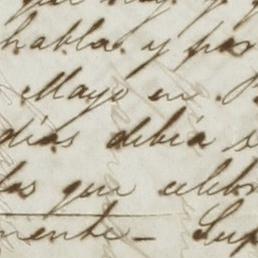 habla y por
Mayo en
días debía s
los que celebr
mente — Sup